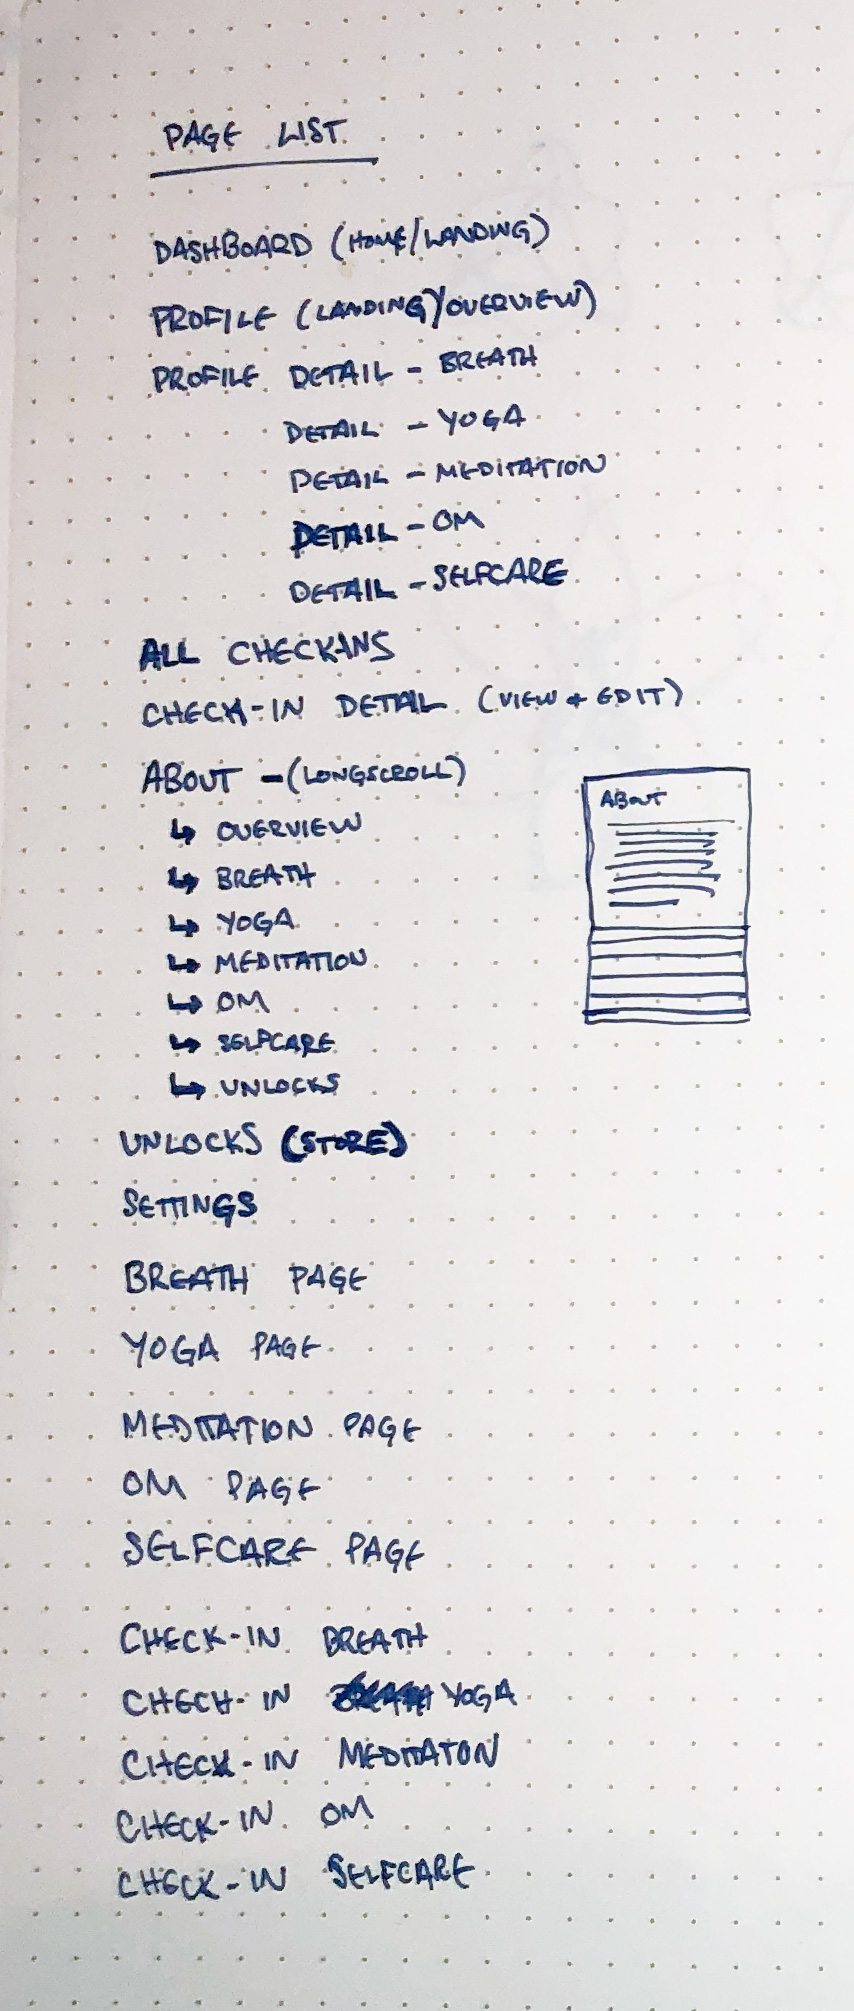 PAGE LIST
DASHBOARD (HOME/LANDING)
PROFILE (LANDING/OVERVIEW)
PROFILE DETAIL - BREATH
DETAIL - YOGA
DETAIL - MEDITATION
DETAIL - OM
DETAIL - SELFCARE
ALL CHECK-INS
CHECK-IN DETAIL (VIEW + EDIT)
ABOUT - (LONGSCROLL)
↳ OVERVIEW
↳ BREATH
↳ YOGA
↳ MEDITATION
↳ OM
↳ SELFCARE
↳ UNLOCKS
ABOUT
UNLOCKS (STORE)
SETTINGS
BREATH PAGE
YOGA PAGE
MEDITATION PAGE
OM PAGE
SELFCARE PAGE
CHECK-IN BREATH
CHECH-IN YOGA
CHECK-IN MEDITATON
CHECK-IN OM
CHECK-IN SELFCARE